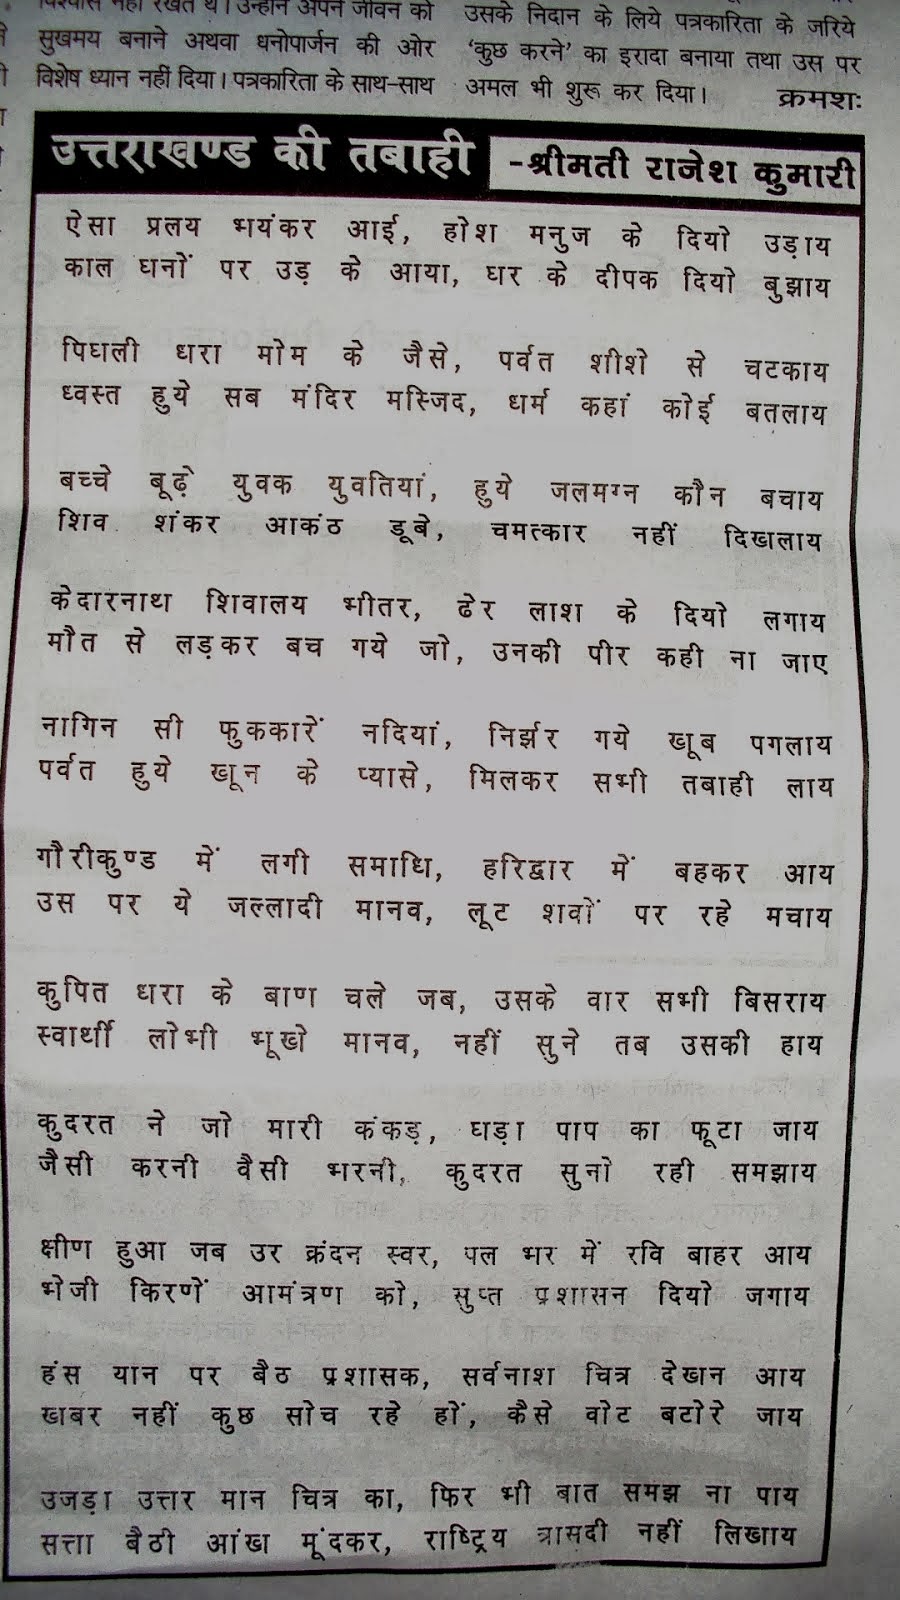 विश्वास नहीं रखते थे। उन्होंने अपने जीवन को
सुखमय बनाने अथवा धनोपार्जन की ओर
विशेष ध्यान नहीं दिया। पत्रकारिता के साथ-साथ
उसके निदान के लिये पत्रकारिता के जरिये
'कुछ करने' का इरादा बनाया तथा उस पर
अमल भी शुरू कर दिया।
क्रमशः
उत्तराखण्ड की तबाही
-श्रीमती राजेश कुमारी
ऐसा प्रलय भयंकर आई, होश मनुज के दियो उड़ाय
काल घनों पर उड़ के आया, घर के दीपक दियो बुझाय
पिघली धरा मोम के जैसे, पर्वत शीशे से चटकाय
ध्वस्त हुये सब मंदिर मस्जिद, धर्म कहां कोई बतलाय
बच्चे बूढ़े युवक युवतियां, हुये जलमग्न कौन बचाय
शिव शंकर आकंठ डूबे, चमत्कार नहीं दिखलाय
केदारनाथ शिवालय भीतर, ढेर लाश के दियो लगाय
मौत से लड़कर बच गये जो, उनकी पीर कही ना जाए
नागिन सी फुककारें नदियां, निर्झर गये खूब पगलाय
पर्वत हुये खून के प्यासे, मिलकर सभी तबाही लाय
गौरीकुण्ड में लगी समाधि, हरिद्वार में बहकर आय
उस पर ये जल्लादी मानव, लूट शवों पर रहे मचाय
कुपित धरा के बाण चले जब, उसके वार सभी बिसराय
स्वार्थी लोभी भूखे मानव, नहीं सुने तब उसकी हाय
कुदरत ने जो मारी कंकड़, घड़ा पाप का फूटा जाय
जैसी करनी वैसी भरनी, कुदरत सुनो रही समझाय
क्षीण हुआ जब उर क्रंदन स्वर, पल भर में रवि बाहर आय
भेजी किरणें आमंत्रण को, सुप्त प्रशासन दियो जगाय
हंस यान पर बैठ प्रशासक, सर्वनाश चित्र देखन आय
खबर नहीं कुछ सोच रहे हों, कैसे वोट बटोरे जाय
उजड़ा उत्तर मान चित्र का, फिर भी बात समझ ना पाय
सत्ता बैठी आंख मूंदकर, राष्ट्रिय त्रासदी नहीं लिखाय